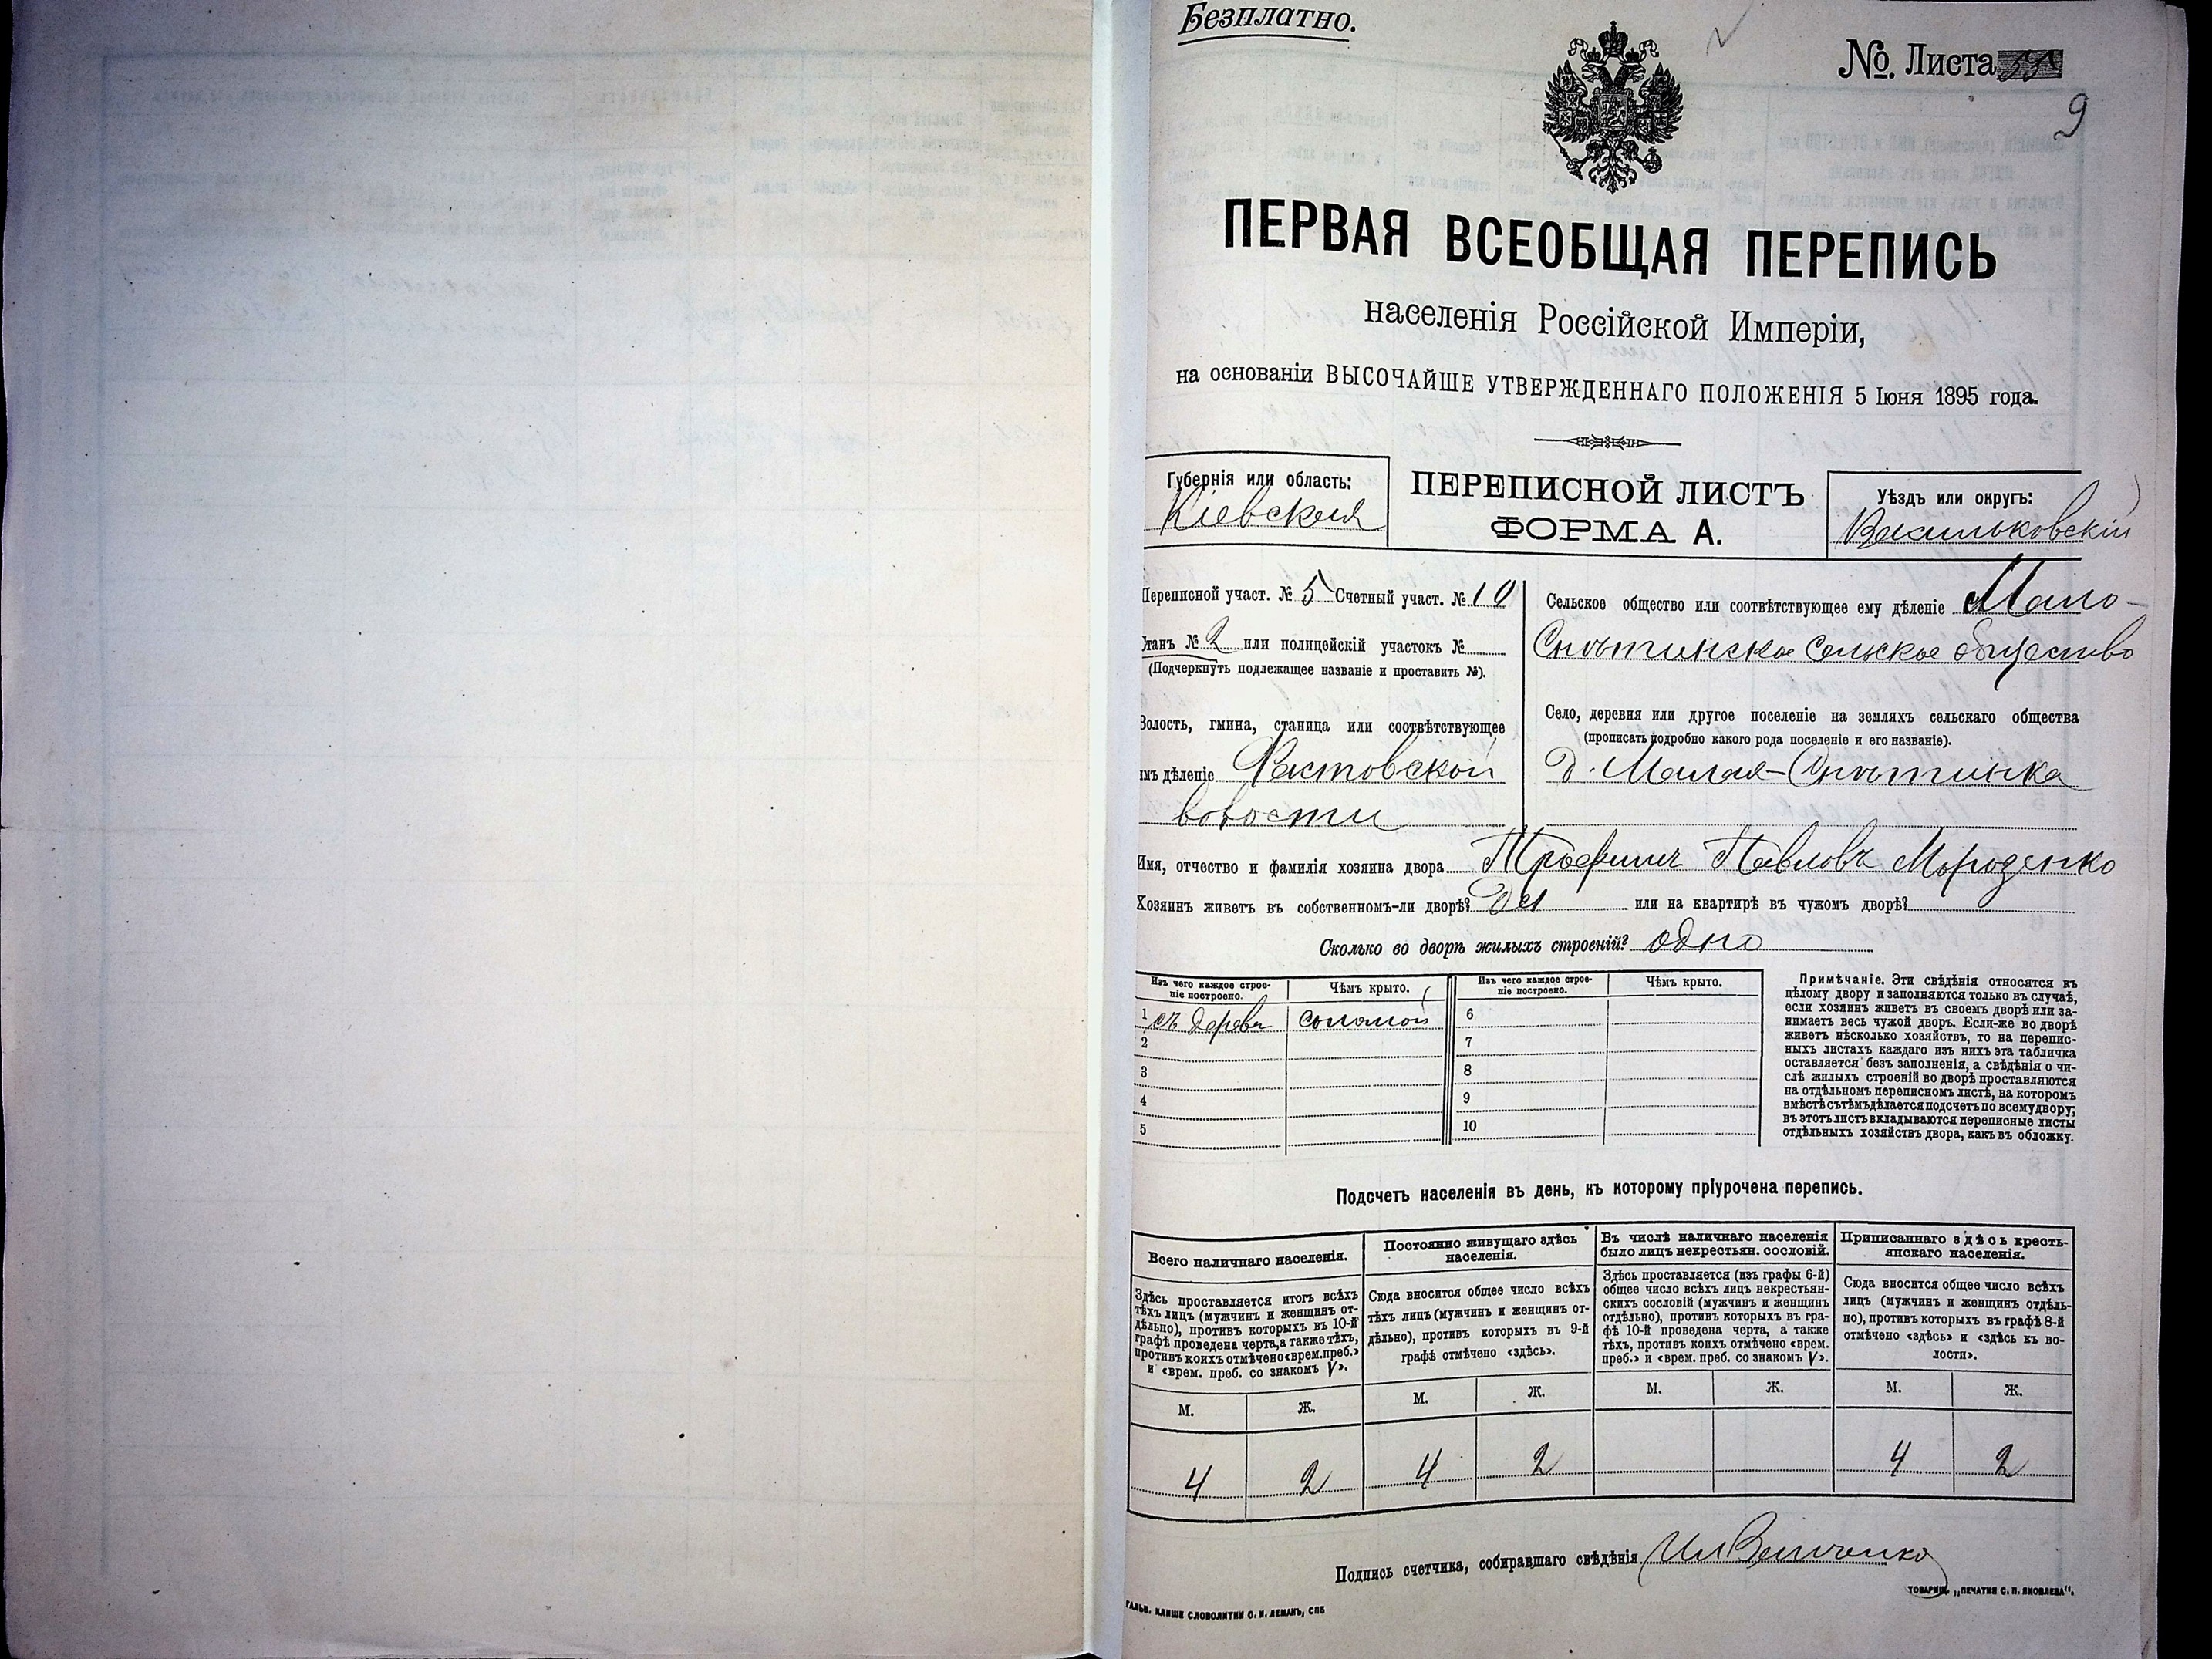 Безплатно.
№. Листа
9
ПЕРВАЯ ВСЕОБЩАЯ ПЕРЕПИСЬ
населенія Россійской Имперіи,
на основаніи ВЫСОЧАЙШЕ УТВЕРЖДЕННАГО ПОЛОЖЕНІЯ 5 Іюня 1895 года.
Губернія или область:
Кіевская
ПЕРЕПИСНОЙ ЛИСТЪ
ФОРМА А.
Уѣздъ или округъ:
Васильковскій
Переписной участ. № 5 Счетный участ. № 10
Станъ № 2 или полицейскій участокъ №
(Подчеркнуть подлежащее названіе и проставить №).
Волость, гмина, станица или соотвѣтствующее
имъ дѣленіе Фастовской
волости
Сельское общество или соотвѣтствующее ему дѣленіе Мало-
Снѣтинское сельское общество
Село, деревня или другое поселеніе на земляхъ сельскаго общества
(прописать подробно какого рода поселеніе и его названіе).
Д. Малая-Снѣтинка
Имя, отчество и фамилія хозяина двора Трофимъ Павловъ Мороженко
Хозяинъ живетъ въ собственномъ-ли дворѣ? Да или на квартирѣ въ чужомъ дворѣ?
Сколько во дворѣ жилыхъ строеній? одно
Изъ чего каждое строе-
ніе построено.
Чѣмъ крыто.
Изъ чего каждое строе-
ніе построено.
Чѣмъ крыто.
1 съ дерева соломой 6
2 7
3 8
4 9
5 10
Примѣчаніе. Эти свѣдѣнія относятся къ
цѣлому двору и заполняются только въ случаѣ,
если хозяинъ живетъ въ своемъ дворѣ или за-
нимаетъ весь чужой дворъ. Если-же во дворѣ
живетъ нѣсколько хозяйствъ, то на перепис-
ныхъ листахъ каждаго изъ нихъ эта табличка
оставляется безъ заполненія, а свѣдѣнія о чи-
слѣ жилыхъ строеній во дворѣ проставляются
на отдѣльномъ переписномъ листѣ, на которомъ
вмѣстѣ съ тѣмъ дѣлается подсчетъ по всему двору;
въ этотъ листъ вкладываются переписные листы
отдѣльныхъ хозяйствъ двора, какъ въ обложку.
Подсчетъ населенія въ день, къ которому пріурочена перепись.
Всего наличнаго населенія.
Здѣсь проставляется итогъ всѣхъ
тѣхъ лицъ (мужчинъ и женщинъ от-
дѣльно), противъ которыхъ въ 10-й
графѣ проведена черта, а также тѣхъ,
противъ коихъ отмѣчено «врем. преб.»
и «врем. преб. со знакомъ V».
М. Ж.
4 2
Постоянно живущаго здѣсь
населенія.
Сюда вносится общее число всѣхъ
тѣхъ лицъ (мужчинъ и женщинъ от-
дѣльно), противъ которыхъ въ 9-й
графѣ отмѣчено «здѣсь».
М. Ж.
4 2
Въ числѣ наличнаго населенія
было лицъ некрестьян. сословій.
Здѣсь проставляется (изъ графы 6-й)
общее число всѣхъ лицъ некрестьян-
скихъ сословій (мужчинъ и женщинъ
отдѣльно), противъ которыхъ въ гра-
фѣ 10-й проведена черта, а также
тѣхъ, противъ коихъ отмѣчено «врем.
преб.» и «врем. преб. со знакомъ V».
М. Ж.
Приписаннаго здѣсь кресть-
янскаго населенія.
Сюда вносится общее число всѣхъ
лицъ (мужчинъ и женщинъ отдѣль-
но), противъ которыхъ въ графѣ 8-й
отмѣчено «здѣсь» и «здѣсь къ во-
лости».
М. Ж.
4 2
Подпись счетчика, собиравшаго свѣдѣнія
ГАЛЬВ. КЛИШЕ СЛОВОЛИТНИ О. И. ЛЕМАНЪ, СПБ
ТОВАРИЩ. „ПЕЧАТНЯ С. П. ЯКОВЛЕВА“.